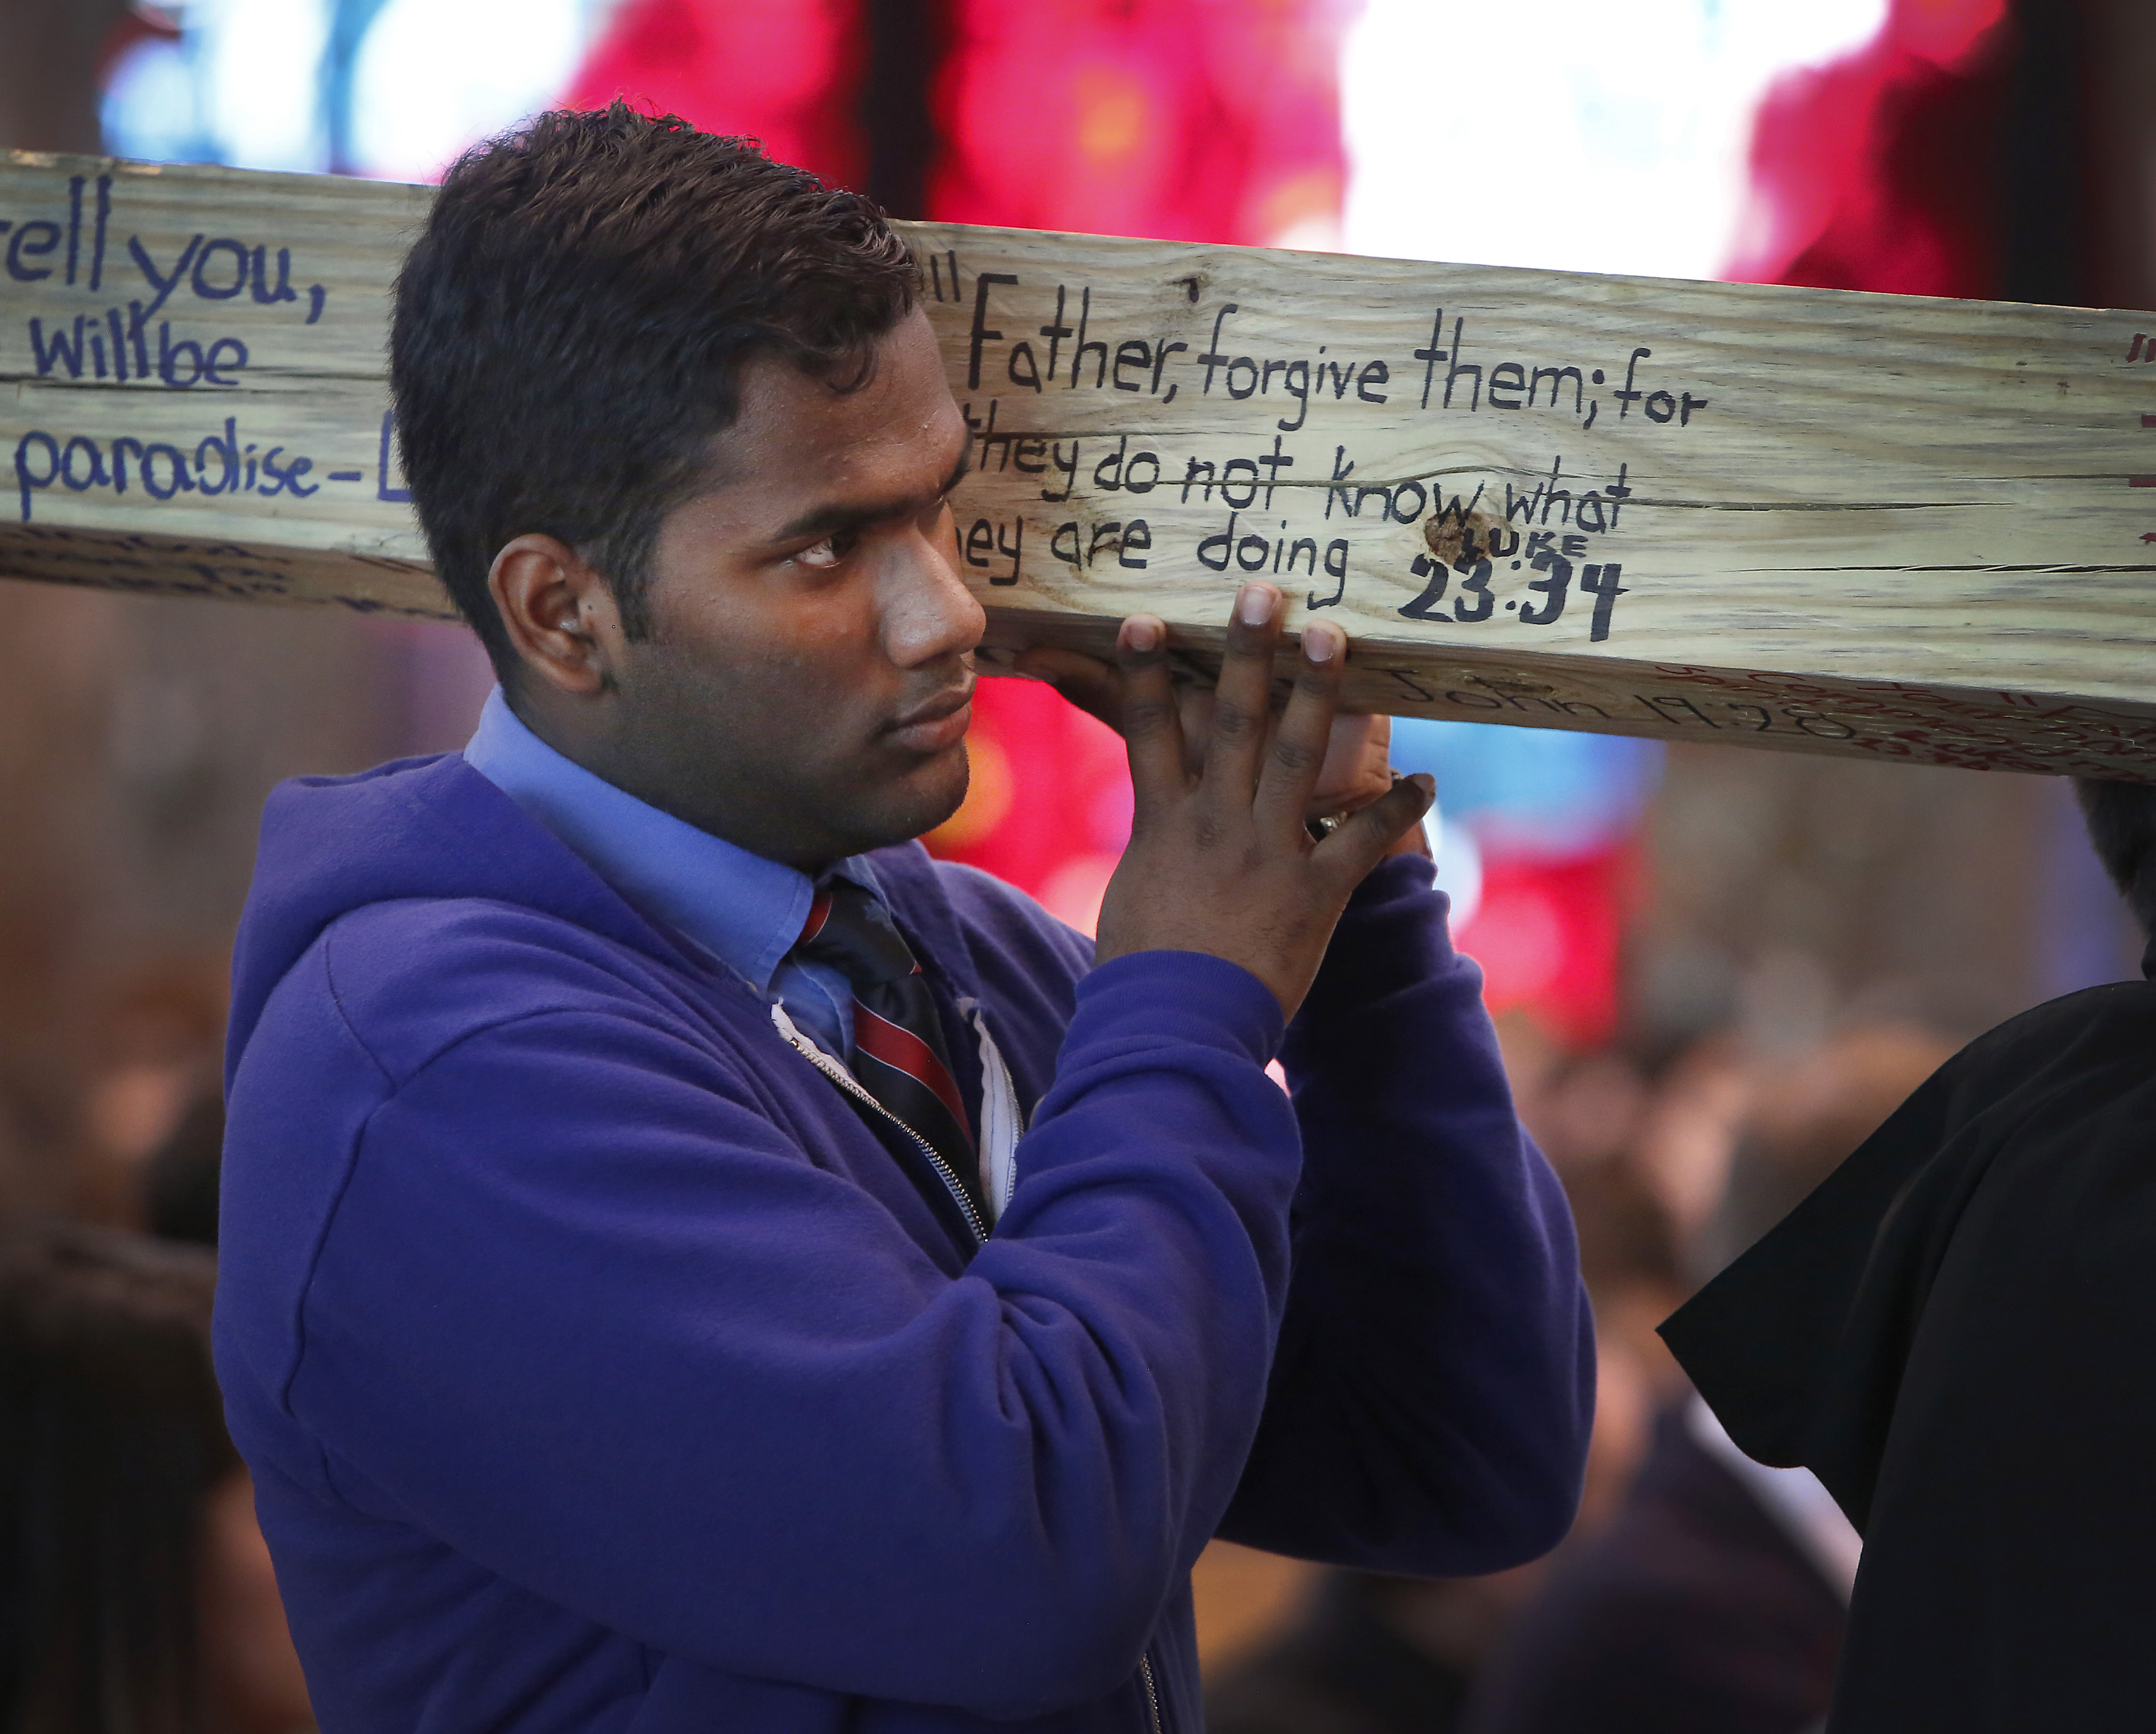 tell you,
will be
paradise -
"Father, forgive them; for
they do not know what
hey are doing LUKE
23:34
John 19:28